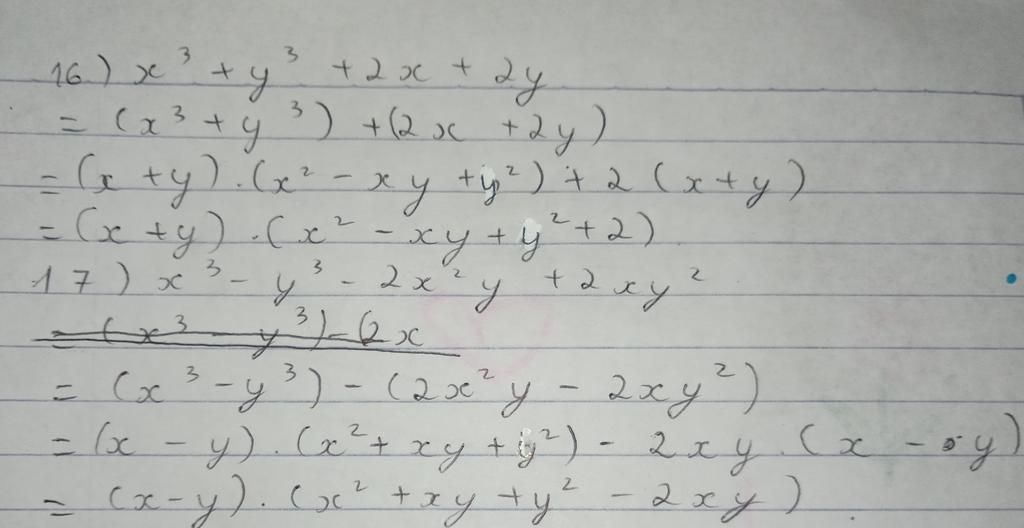 16) x³ + y³ + 2x + 2y
= (x³ + y³) + (2x + 2y)
= (x + y) . (x² - xy + y²) + 2 (x + y)
= (x + y) . (x² - xy + y² + 2)
17) x³ - y³ - 2x²y + 2xy²
= (x³ - y³) - (2x
= (x³ - y³) - (2x²y - 2xy²)
= (x - y) . (x² + xy + y²) - 2xy . (x - y)
= (x - y) . (x² + xy + y² - 2xy)